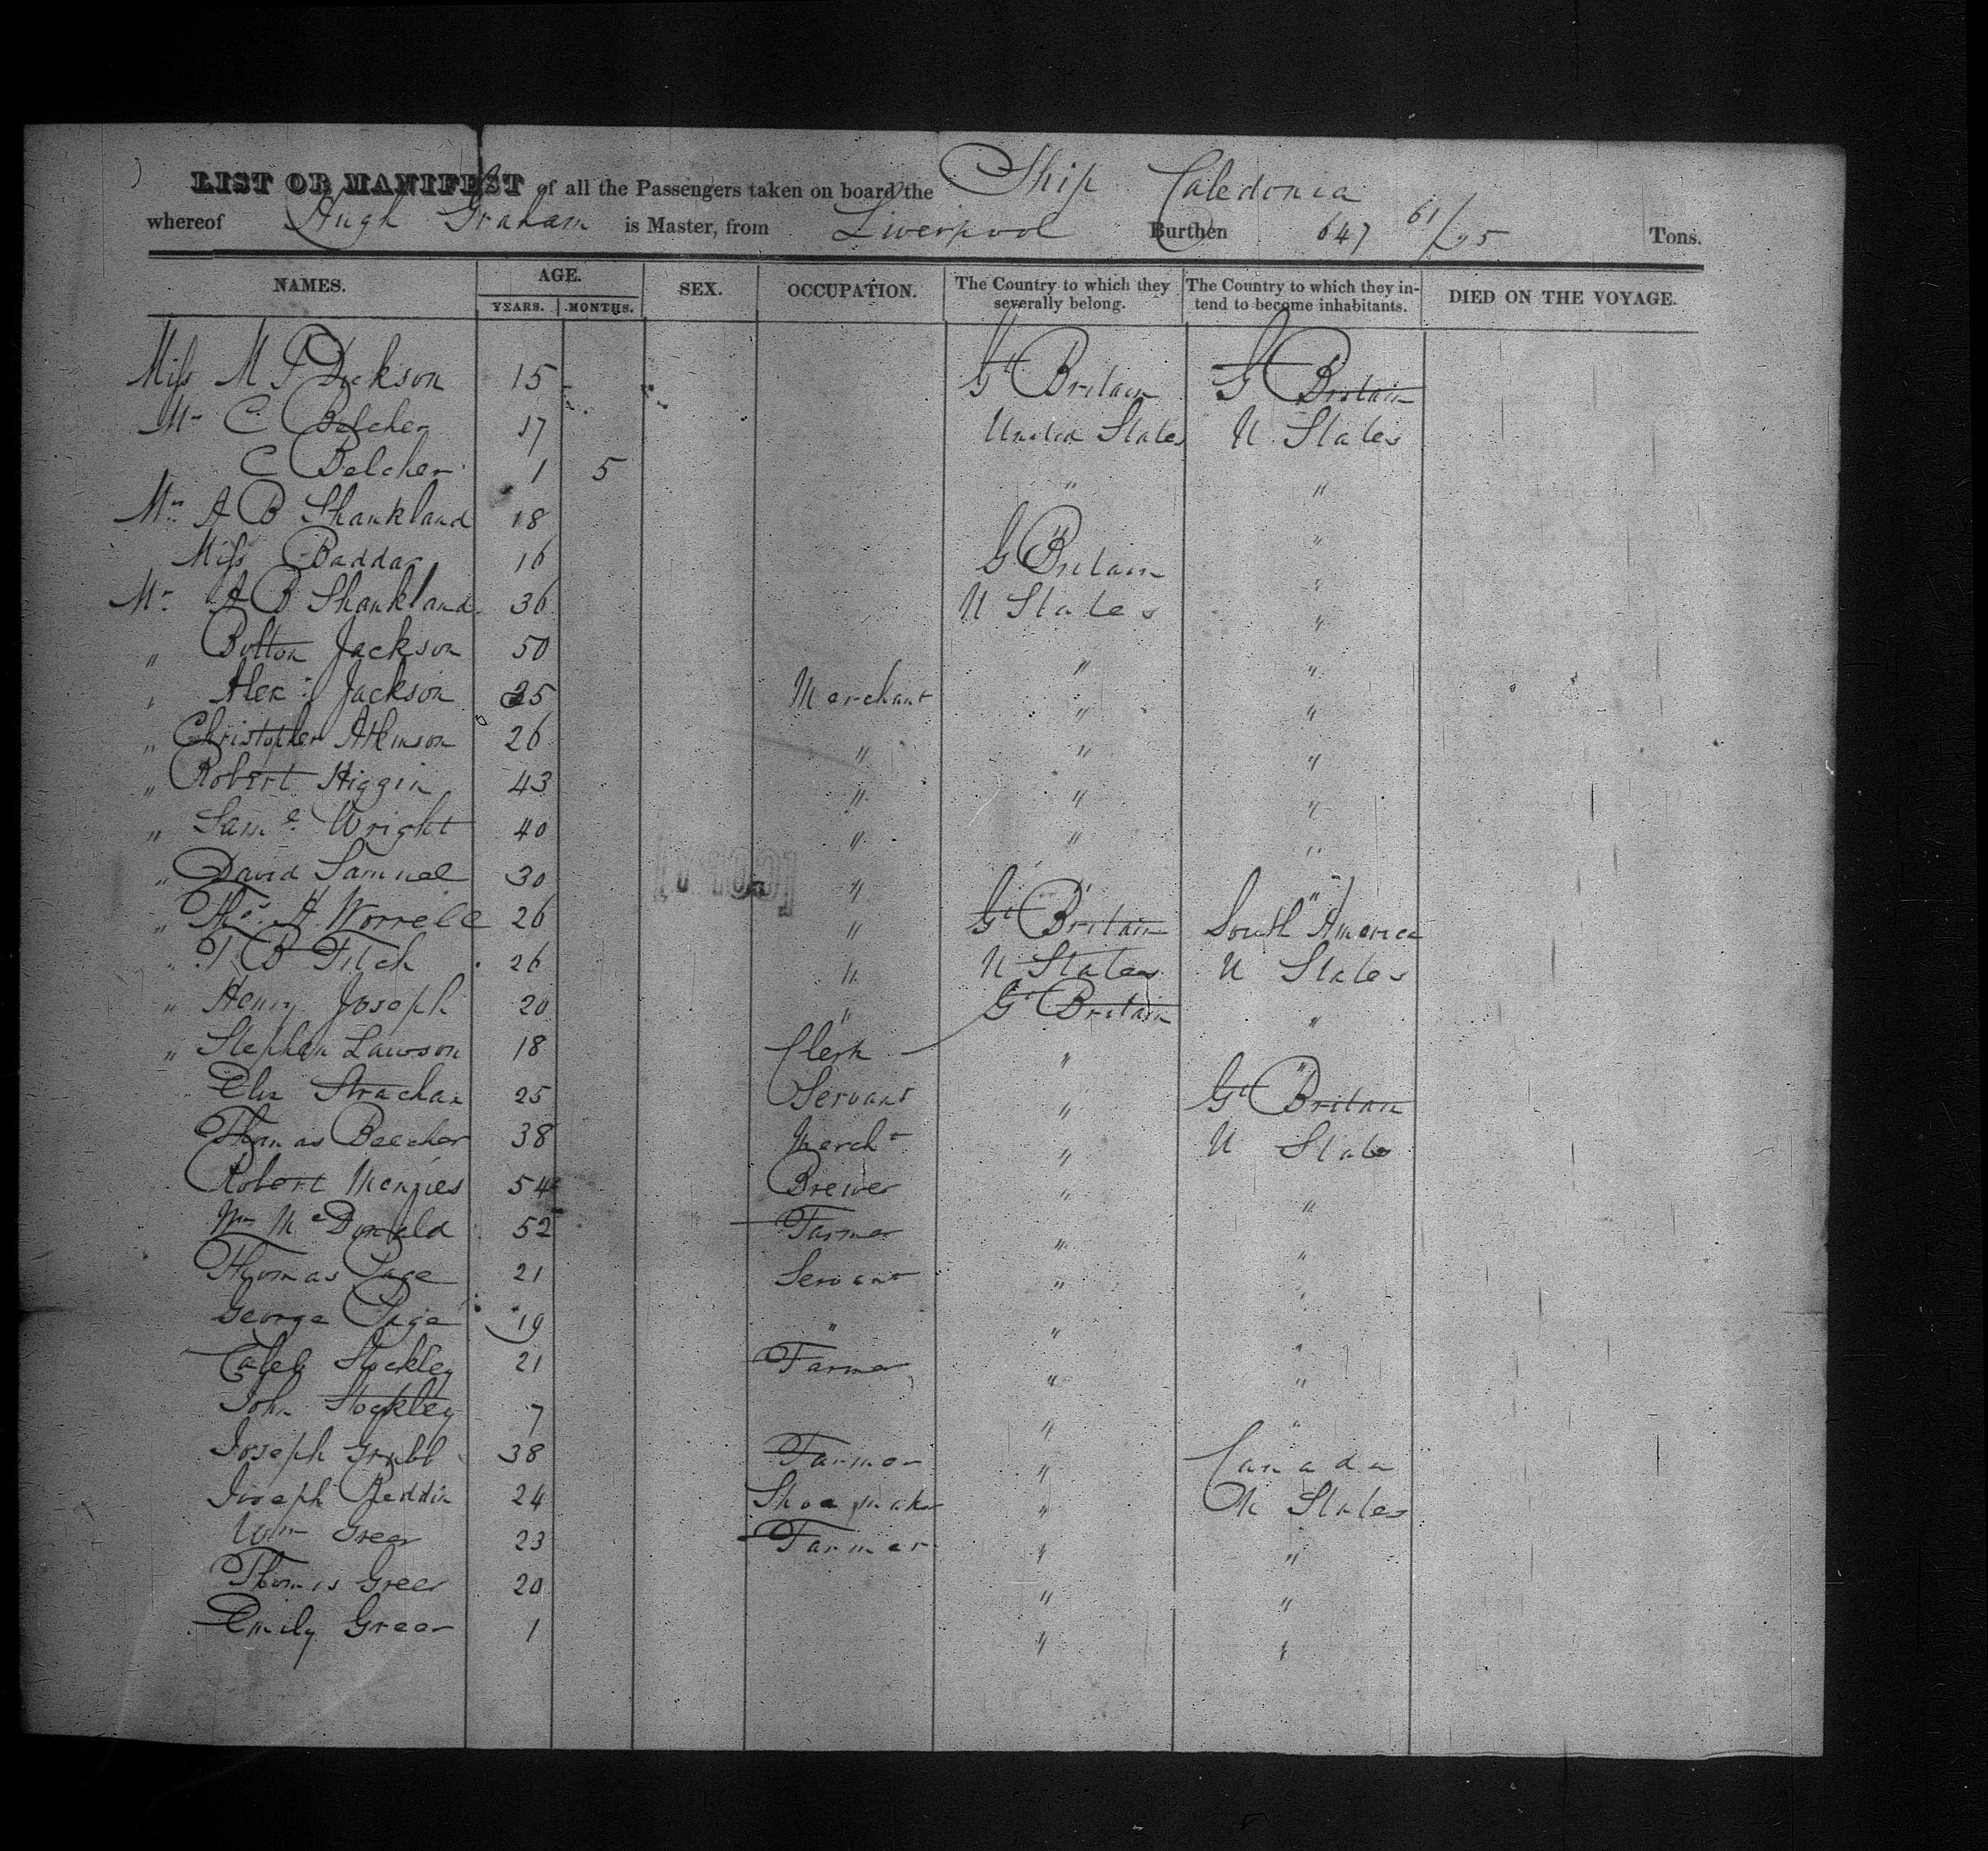 LIST OR MANIFEST of all the Passengers taken on board the Ship Caledonia
whereof Hugh Graham is Master, from Liverpool Burthen 647 61/95 Tons.
NAMES. AGE. SEX. OCCUPATION. The Country to which they severally belong. The Country to which they intend to become inhabitants. DIED ON THE VOYAGE.
YEARS. MONTHS.
Miss M Dickson 15 Gt Britain Gt Britain
C Belcher 17 United States U States
C Belcher 1 5 " "
A B Shankland 18 " "
Miss Baddar 16 G Britain "
Mr A B Shankland 36 U States "
" Bolton Jackson 50 " "
" Alex: Jackson 25 Merchant " "
" Christopher Atkinson 26 " " "
" Robert Higgin 43 " " "
" Saml Wright 40 " " "
" David Samuel 30 " " "
" Thos H Worrell 26 " Gt Britain South America
" B Fitch 26 " U States U States
" Henry Joseph 20 " Gt Britain "
" Stephen Lawson 18 Clerk " "
Eliz Strachan 25 Servant " Gt Britain
Thomas Beecher 38 Mercht " U States
Robert Menzies 54 Brewer " "
Wm McDonald 52 Farmer " "
Thomas Page 21 Servant " "
George Page 19 " " "
Caleb Stockley 21 Farmer " "
John Stockley 7 " "
Joseph Grubb 38 Farmer " Canada
Joseph 24 Shoemaker " U States
Wm Greer 23 Farmer " "
Thomas Greer 20 " "
Emily Greer 1 " "